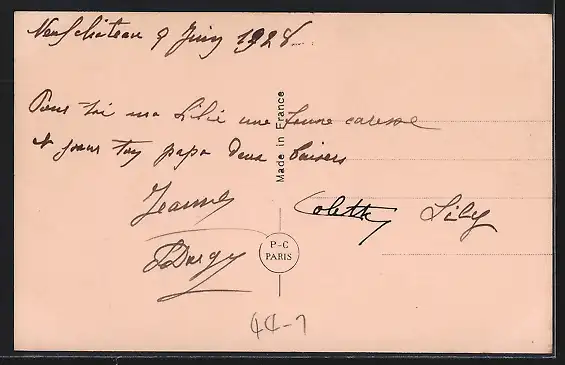 Neufchâteau 9 Juin 1928
Pour toi ma Lilie une bonne caresse
et pour ton papa deux baisers
Jeanne Colette Lily
Made in France
P-C
PARIS
44-7